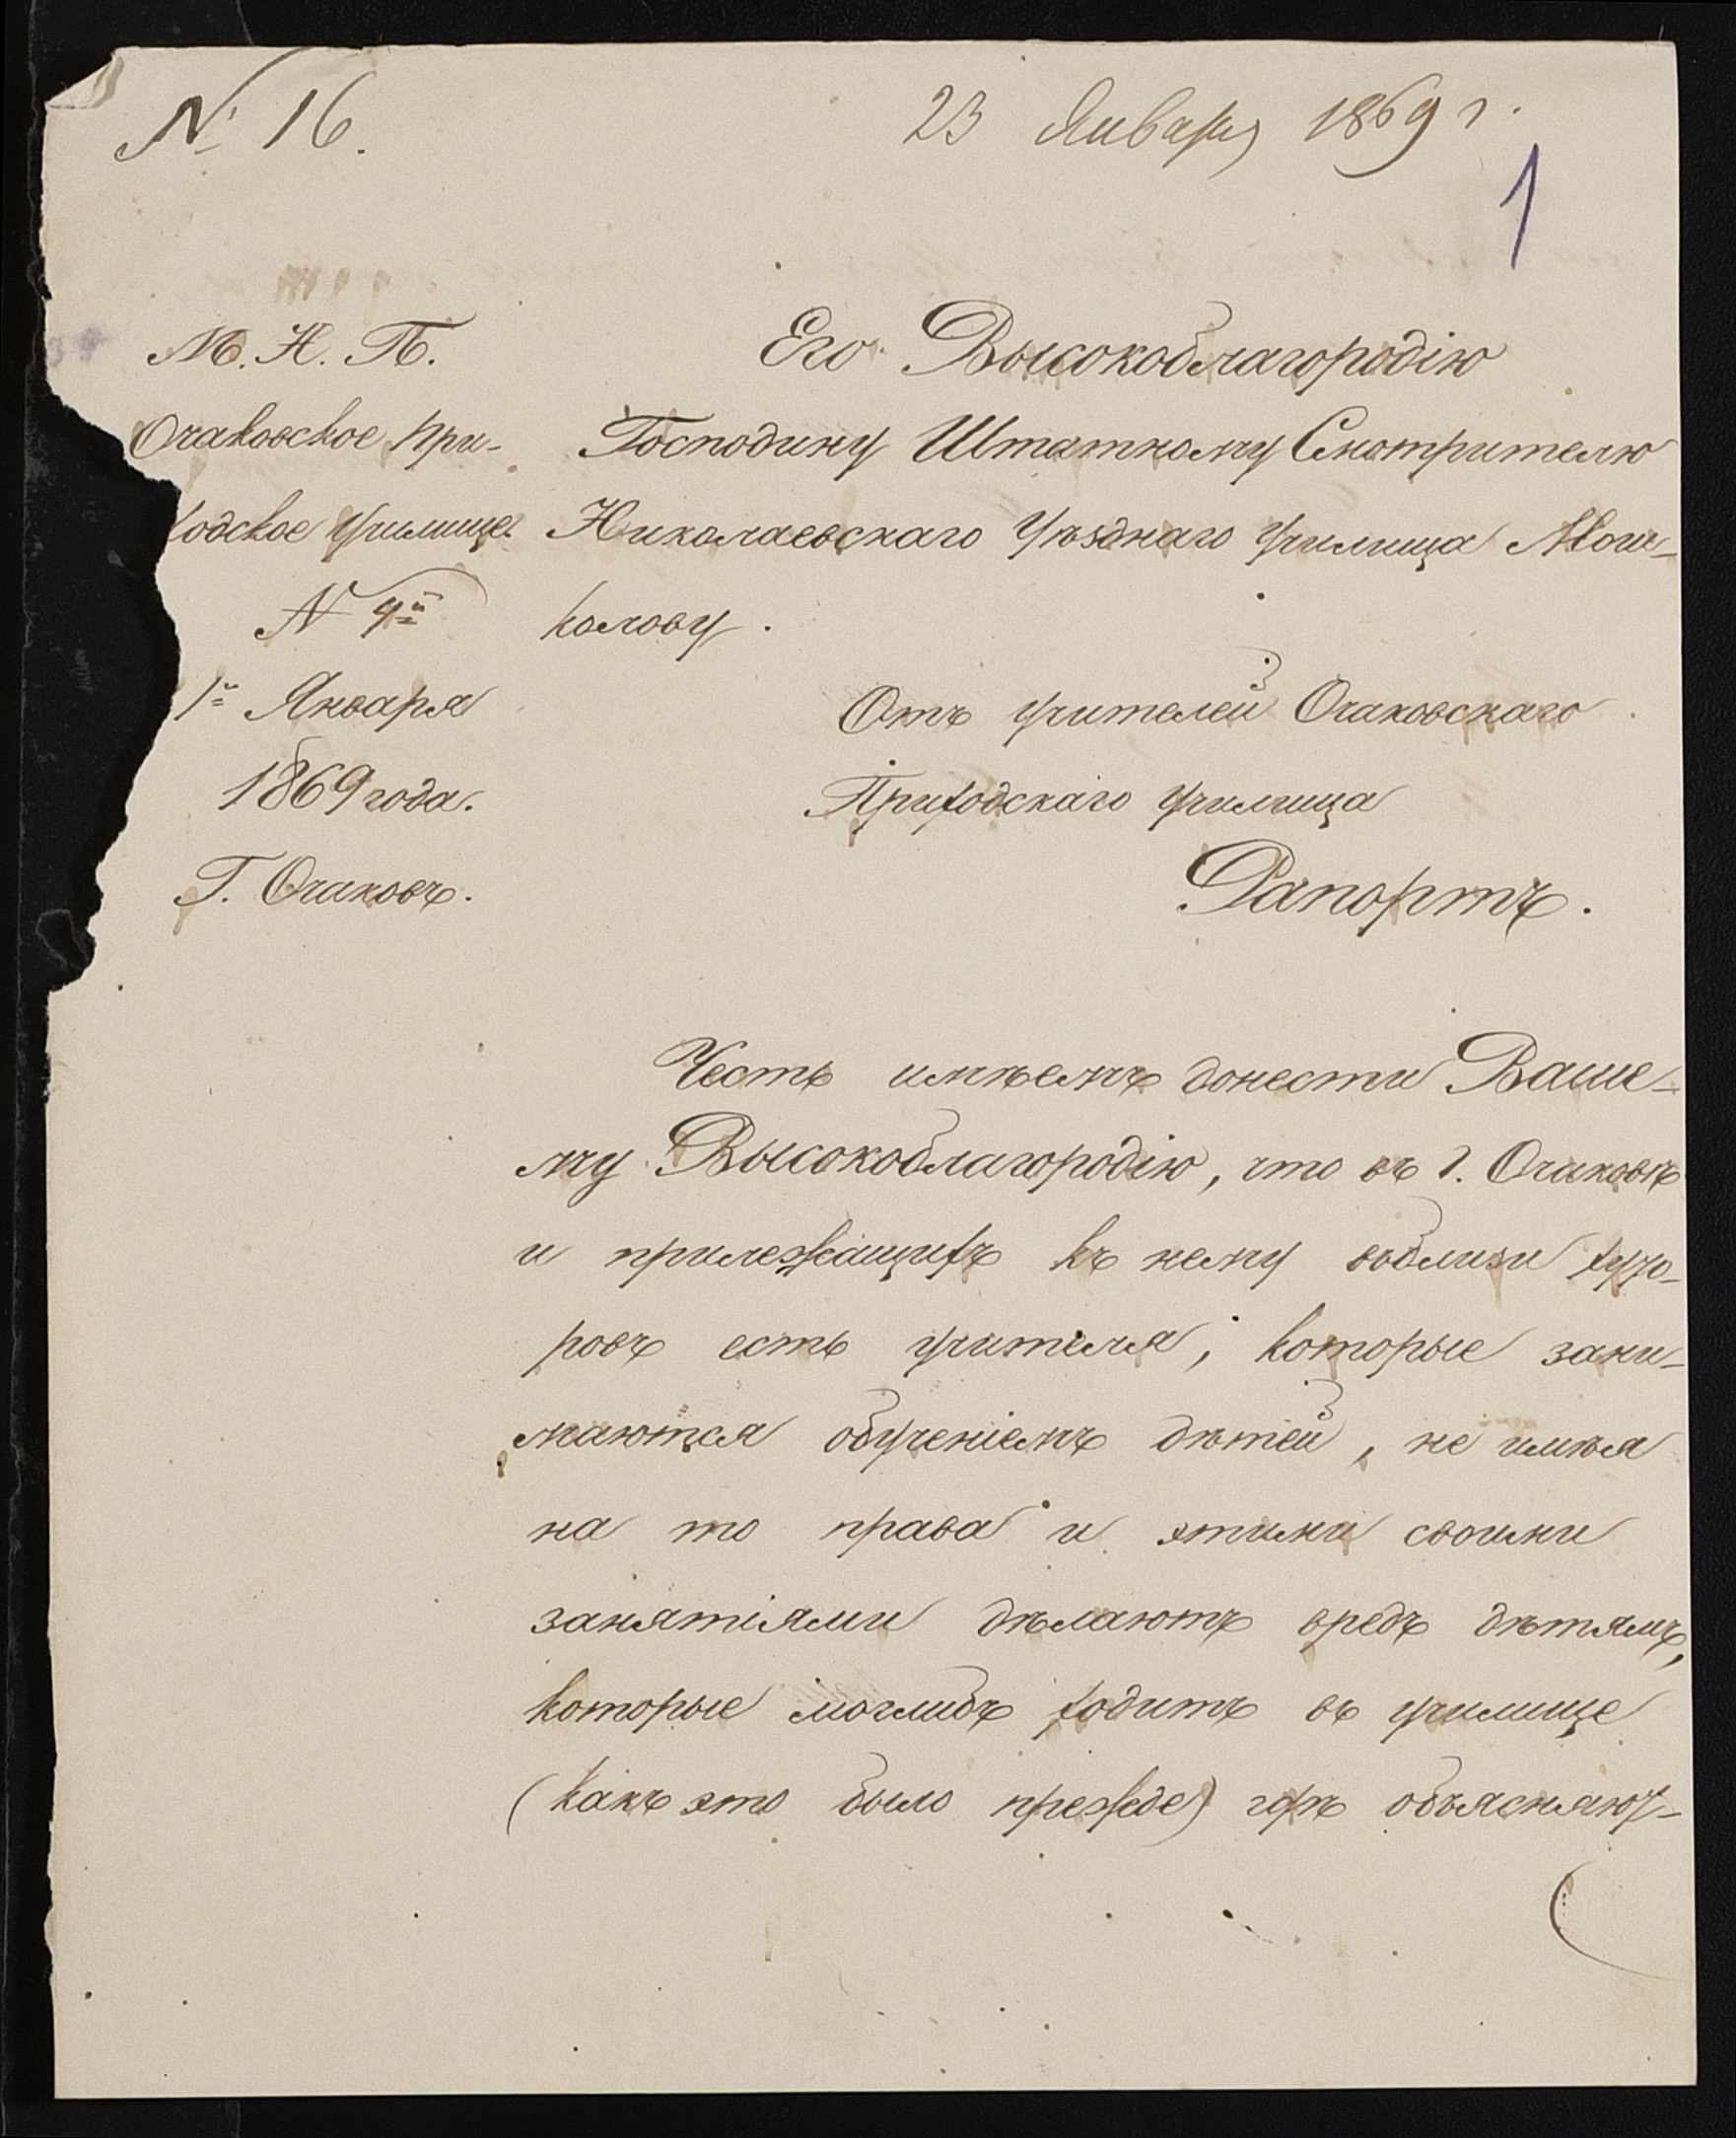 № 16.
23 Января 1869 г.
1
М. Н. П.
Очаковское При-
ходское Училище
N 4й
1го Января
1869 года.
Г. Очаковъ.
Его Высокоблагородію
Господину Штатному Смотрителю
Николаевскаго Уѣзднаго Училища Мош-
колову.
Отъ учителей Очаковскаго
Приходскаго училища
Рапортъ.
Честь имѣемъ донести Ваше-
му Высокоблагородію, что въ г. Очаковѣ
и прилежащихъ къ нему вблизи хуто-
ровъ есть учителя, которые зани-
маются обученіемъ дѣтей, не имѣя
на то права и этими своими
занятіями дѣлаютъ вредъ дѣтямъ,
которые моглибъ ходить въ училище
(какъ это было прежде) гдѣ объясняют-